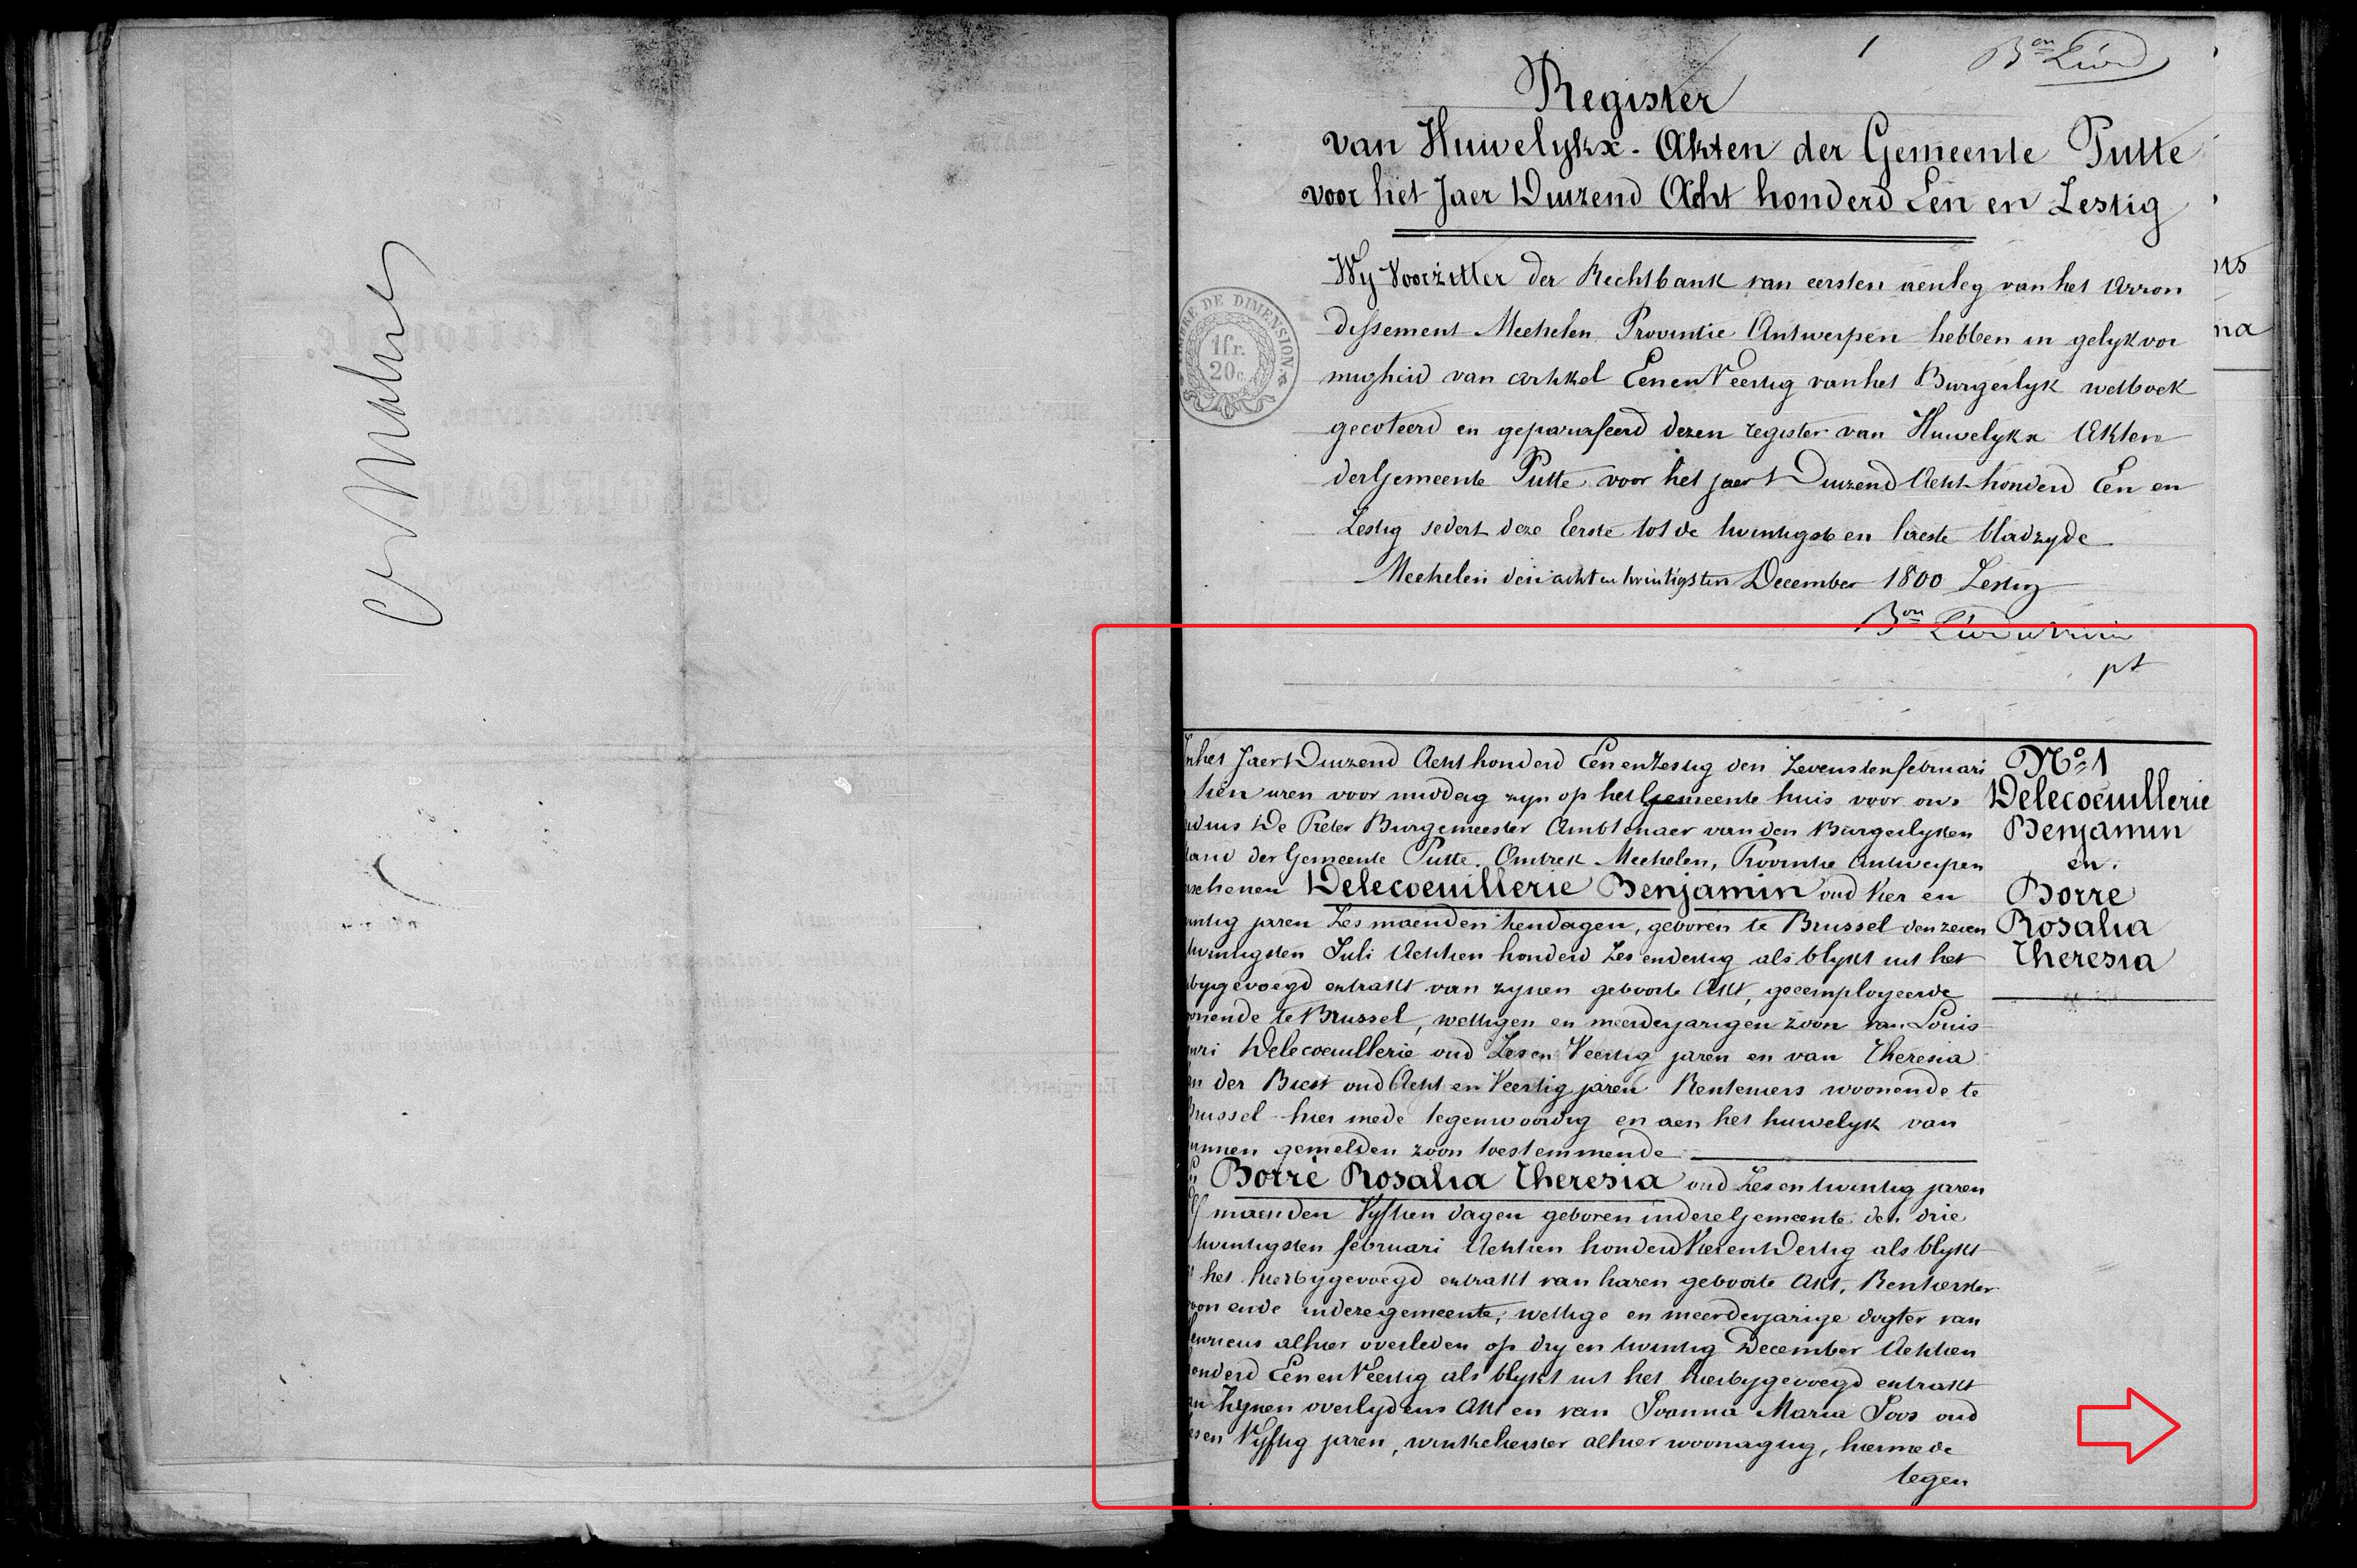 1
Bon
Register
van Huwelykx-Akten der Gemeente Putte
voor het Jaer Duizend Acht honderd Een en Zestig
Wy Voorzitter der Rechtbank van eersten aenleg van het Arron
dissement Mechelen Provintie Antwerpen hebben in gelykvor
migheid van artikel Een en Veertig van het Burgerlyk wetboek
gecoteerd en geparafeerd dezen register van Huwelykx Akten
der Gemeente Putte voor het jaer Duizend Acht honderd Een en
Zestig sedert deze Eerste tot de twintigste en laeste bladzyde
Mechelen den acht en twintigsten December 1800 Zestig
Bon
pt
TIMBRE DE DIMENSION
1 fr.
20 c.
Malines
nhet Jaer Duizend Acht honderd Een en Zestig den Zevensten februari
tien uren voor middag zyn op het Gemeente huis voor ons
De Preter Burgemeester Ambtenaer van den Burgerlyken
tand der Gemeente Putte, Omtrek Mechelen, Provintie Antwerpen
rschenen Delecoeuillerie Benjamin oud Vier en
intig jaren Zes maenden tien dagen, geboren te Brussel den zeven
twintigsten Juli Achtien honderd Zes en dertig als blykt uit het
bygevoegd extrakt van zynen geboorte Akt, geëmployeerde
onende te Brussel, wettigen en meerderjarigen zoon van Louis
nri Delecoeuillerie oud Zes en Veertig jaren en van Theresia
n der Biest oud Acht en Veertig jaren Renteniers woonende te
Brussel hier mede tegenwoordig en aen het huwelyk van
unnen gemelden zoon toestemmende
En Borré Rosalia Theresia oud Zes en twintig jaren
Elf maenden Vyftien dagen geboren in deze Gemeente den drie
twintigsten februari Achtien honderd Vier en Dertig als blykt
het hierbygevoegd extrakt van haren geboorte Akt, Rentierster
oonende in deze gemeente, wettige en meerderjarige dogter van
enricus alhier overleden op dry en twintig December Achtien
onderd Een en Veertig als blykt uit het hierbygevoegd extrakt
an Zynen overlydens Akt en van Joanna Maria Joos oud
es en Vyftig jaren, winkelierster alhier woonagtig, hiermede
tegen
No 1
Delecoeuillerie
Benjamin
en
Borre
Rosalia
Theresia